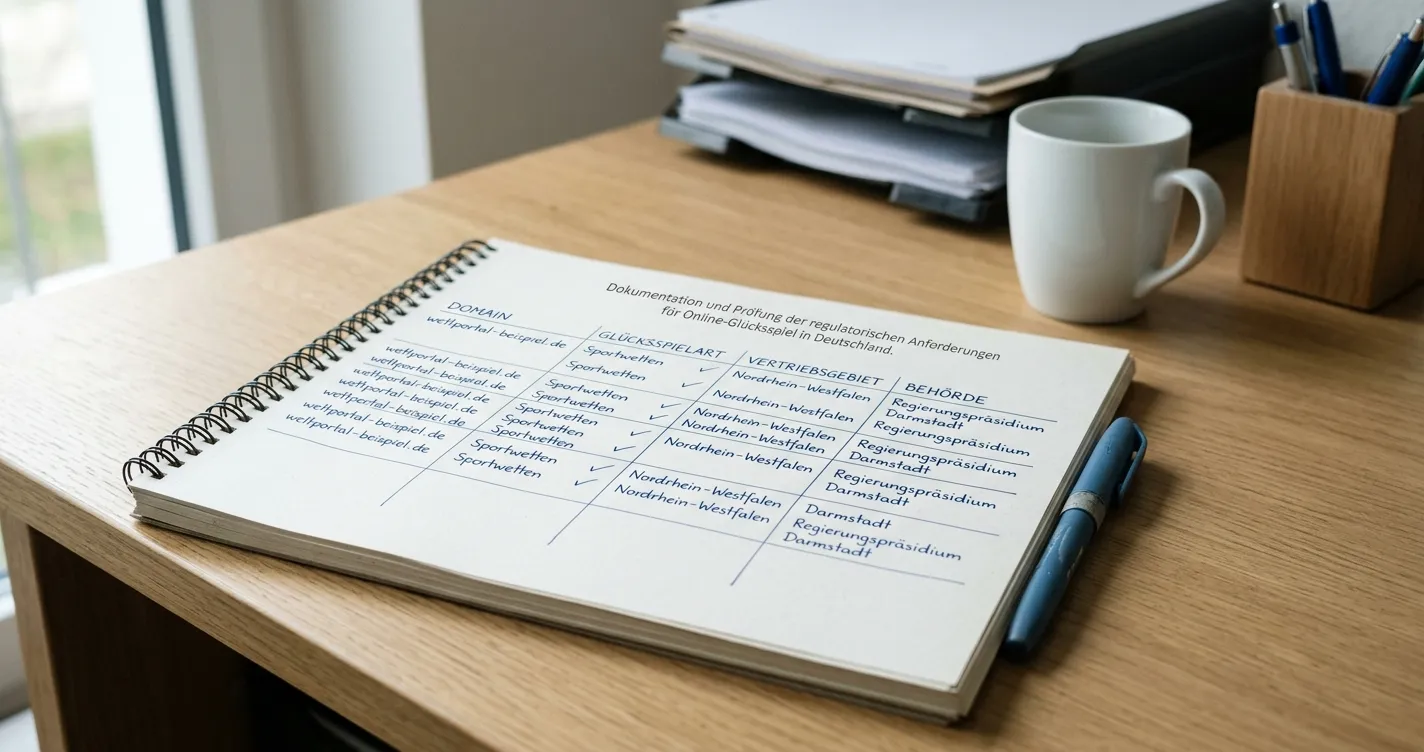 Dokumentation und Prüfung der regulatorischen Anforderungen
für Online-Glücksspiel in Deutschland.
DOMAIN
wettportal-beispiel.de
wettportal-beispiel.de
wettportal-beispiel.de
wettportal-beispiel.de
wettportal-beispiel.de
wettportal-beispiel.de
wettportal-beispiel.de
GLÜCKSSPIELART
Sportwetten ✓
Sportwetten ✓
Sportwetten ✓
Sportwetten ✓
Sportwetten ✓
Sportwetten
Sportwetten ✓
Sportwetten ✓
VERTRIEBSGEBIET
Nordrhein-Westfalen
Nordrhein-Westfalen
Nordrhein-Westfalen
Nordrhein-Westfalen
Nordrhein-Westfalen
Nordrhein-Westfalen
Nordrhein-Westfalen
BEHÖRDE
Regierungspräsidium
Darmstadt
Regierungspräsidium
Regierungspräsidium
Darmstadt
Regierungspräsidium
Darmstadt
Darmstadt
Regierungspräsidium
Darmstadt